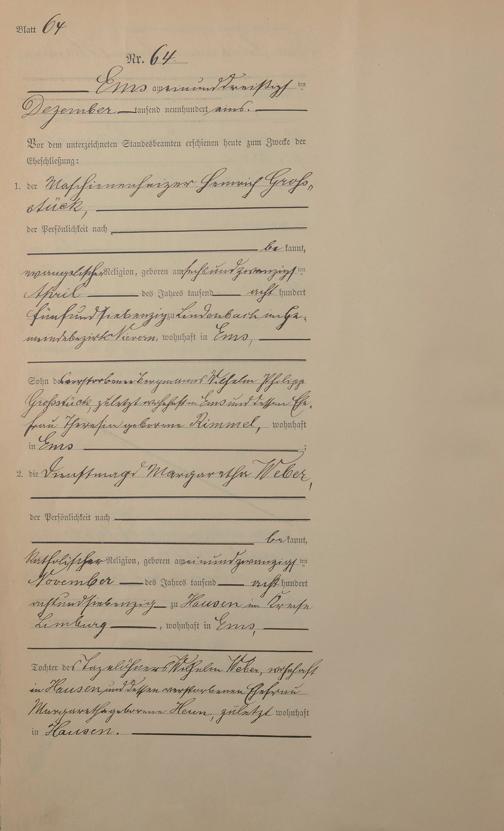 Blatt 64
Nr. 64.
Ems am einunddreißigsten
Dezember tausend neunhundert eins.
Vor dem unterzeichneten Standesbeamten erschienen heute zum Zwecke der
Eheschließung:
1. der Maschienenheizer Heinrich Groß-
stück,
der Persönlichkeit nach
bekannt,
evangelischer Religion, geboren am sechsundzwanzigsten
April des Jahres tausend acht hundert
fünfundsiebenzig zu Lindenbach in Ge-
meindebezirk Nievern, wohnhaft in Ems,
Sohn des verstorbenen Bergmanns Wilhelm Philipp
Großstück, zuletzt wohnhaft in Ems und dessen Ehe-
frau Theresia geborene Rimmel, wohnhaft
in Ems ;
2. die Dienstmagd Margaretha Weber,
der Persönlichkeit nach
bekannt,
katholischer Religion, geboren am einundzwanzigsten
November des Jahres tausend acht hundert
achtundsiebenzig zu Hausen im Kreise
Limburg, wohnhaft in Ems,
Tochter des Tagelöhners Wilhelm Weber, wohnhaft
in Hausen und dessen verstorbenen Ehefrau
Margaretha geborene Heun, zuletzt wohnhaft
in Hausen.